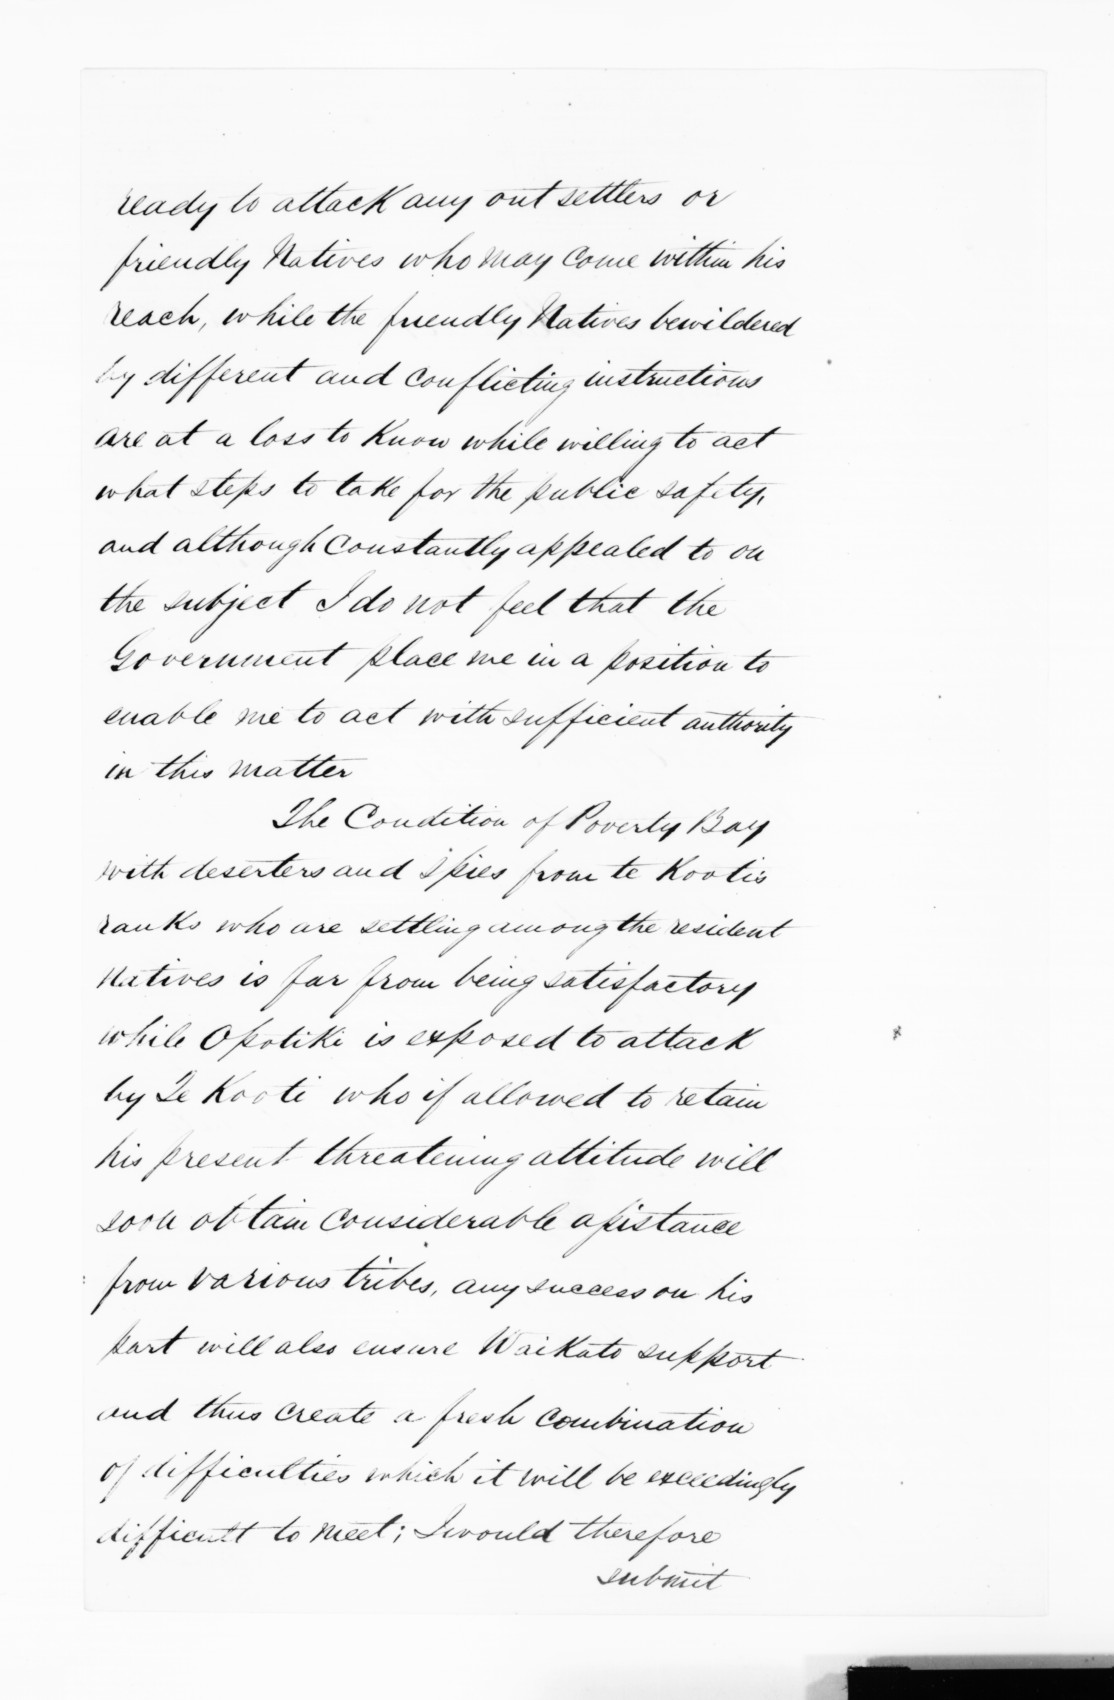 ready to attack any out settlers or
friendly Natives who may come within his
reach, while the friendly Natives bewildered
by different and conflicting instructions
are at a loss to know while willing to act
what steps to take for the public safety,
and although constantly appealed to on
the subject I do not feel that the
Government place me in a position to
enable me to act with sufficient authority
in this matter
The Condition of Poverty Bay
with deserters and Spies from te Kooti's
ranks who are settling among the resident
Natives is far from being satisfactory
while Opotiki is exposed to attack
by Te Kooti who if allowed to retain
his present threatening attitude will
soon obtain considerable assistance
from various tribes, any success on his
part will also ensure Waikato support
and thus create a fresh combination
of difficulties which it will be exceedingly
difficult to meet; I would therefore
submit